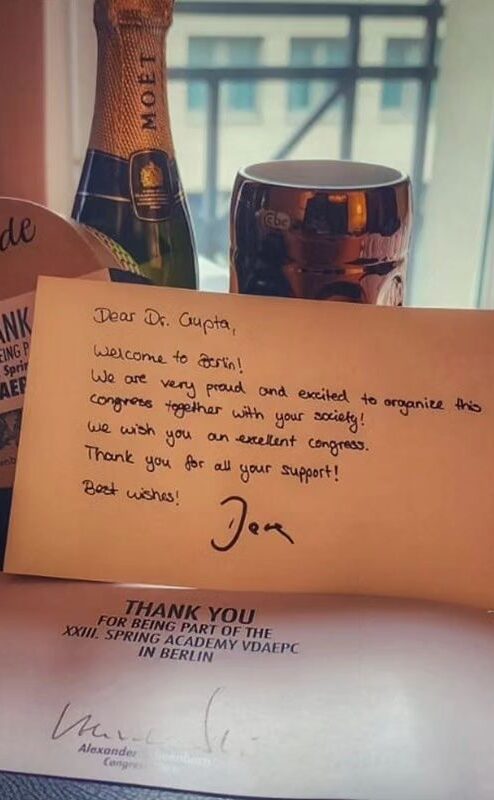 MOËT
cbc
de
ANK
EING P
Sprin
AEP
Dear Dr. Gupta,
Welcome to Berlin!
We are very proud and excited to organize this
congress together with your society!
We wish you an excellent congress.
Thank you for all your support!
Best wishes!
THANK YOU
FOR BEING PART OF THE
XXIII. SPRING ACADEMY VDAEPC
IN BERLIN
Alexander
Congre